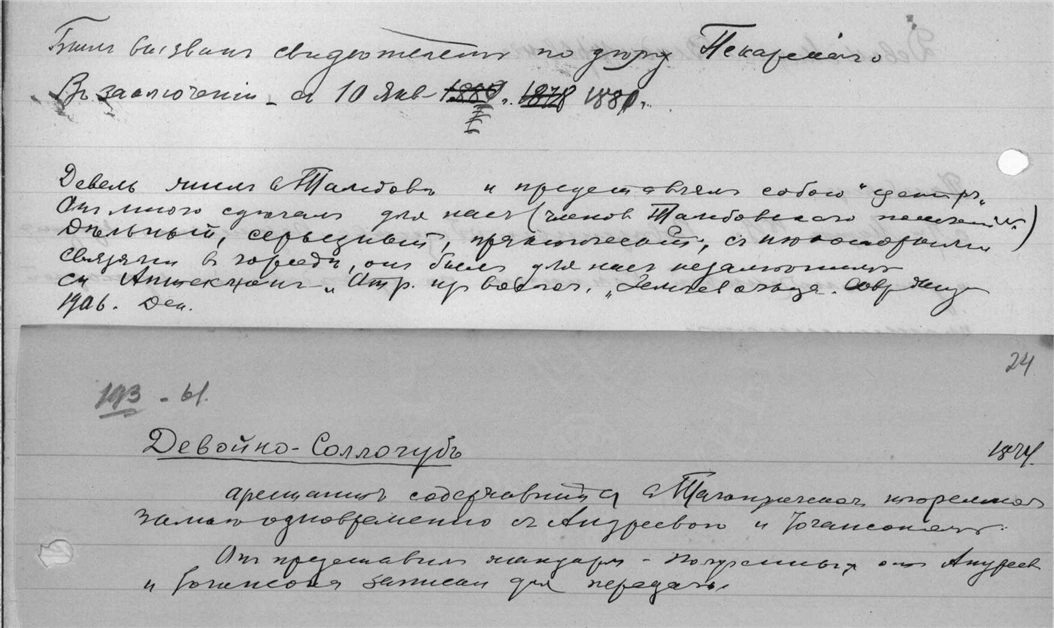 Былъ вызванъ свидѣтелемъ по дѣлу Пекарскаго
Въ заключеніи - съ 10 Янв 1881 г.
Девель жилъ въ Тамбовѣ и представлялъ собою "центръ"
Онъ много сдѣлалъ для насъ (членовъ Тамбовскаго поселенія)
Дѣльный, серьезный, практическій, съ нѣкоторыми
связями въ городѣ, онъ былъ для насъ незамѣнимъ
см Аптекманъ "Отр. изъ восп. "Земл
1906. Дек.
24
193 - 61.
Девойно-Соллогубъ
1874.
арестантъ содержавшійся въ Таганрогскомъ тюремномъ
замкѣ одновременно съ Андреевою и Іогансономъ.
Онъ представилъ жандарм - полученныя отъ Андреев
и Іогансона записки для передачи